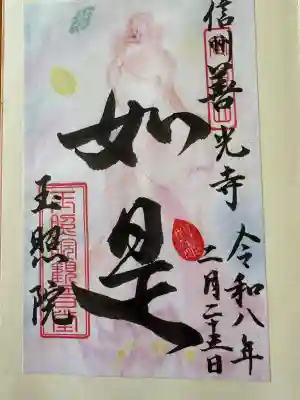 信州善光寺
令和八年
二月二十三日
如是
玉照院